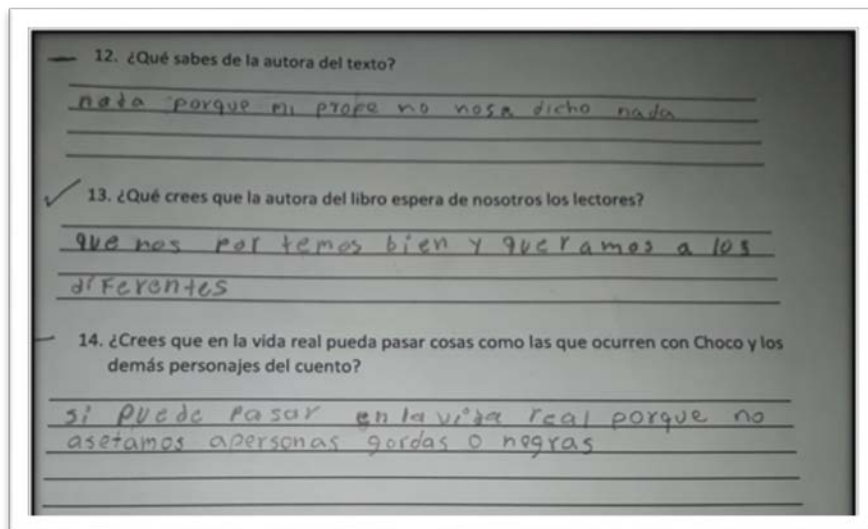 12. ¿Qué sabes de la autora del texto?
nada porque mi profe no nosa dicho nada
13. ¿Qué crees que la autora del libro espera de nosotros los lectores?
que nos por temos bien y queramos a los
diferentes
14. ¿Crees que en la vida real pueda pasar cosas como las que ocurren con Choco y los
demás personajes del cuento?
si puede pasar en la vida real porque no
asetamos apersonas gordas o negras